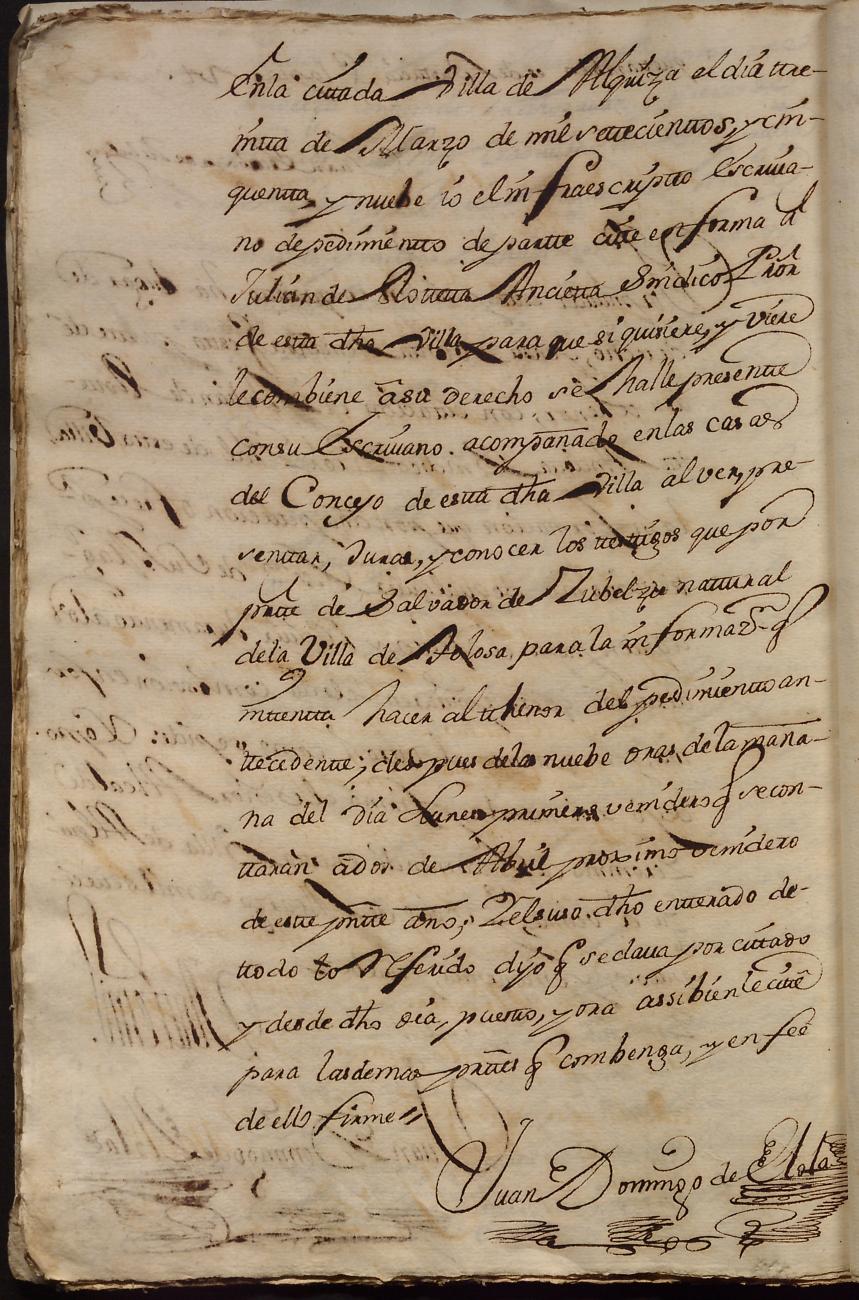 Enla cittada Villa de Alquiza el dia ttre-
intta de Marzo de mil settecienttos, y cin-
quentta, y nuebe io el infraescriptto Escriua-
no de pedimientto de partte citte en forma a
Julian de Rottetta Ancietta Sindico Pror
de estta dha Villa para que si quisiere, y viere
le combiene â su derecho se halle presentte
con su Escriuano acompañado en las casas
del Concejo de estta dha Villa al ver, pre-
senttar, Jurar, y conocer los testtigos que por
partte de Salvador de Zubelzu nattural
dela Villa de Tolosa para la informazn q
inttentta hacer al thenor del pedimientto an-
ttecedentte, despues delas nuebe oras de la maña-
na del dia Lunes primero venidero q se con-
ttaran a dos de Abril proximo venidero
de estte pntte año; Y el suso dho entterado de
ttodo lo Referido dijo q se daua por cittado
y desde dho dia, puestto, y ora assi bien le citte
para las demas parttes q combenga, y en feè
de ello firme
Juan Domingo de Elola